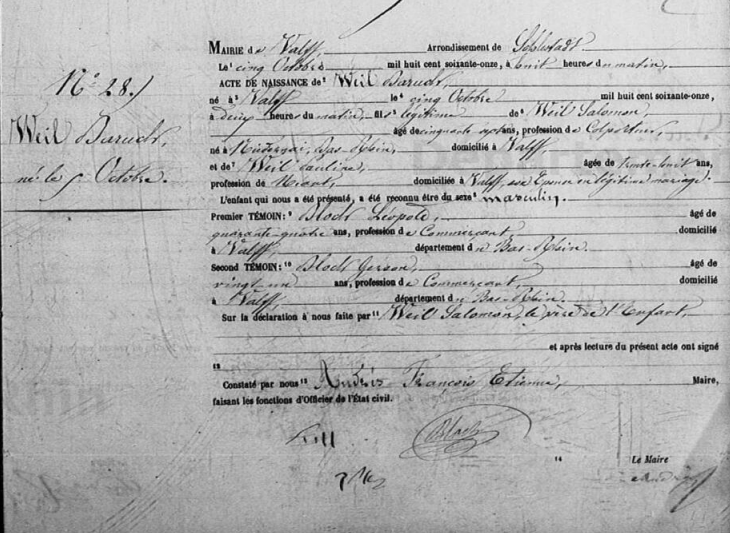 N° 28.
Weil Baruch,
né le 5. Octobre.
MAIRIE de Valff, Arrondissement de Schlestadt
Le cinq Octobre mil huit cent soixante-onze, à huit heures du matin,
ACTE DE NAISSANCE de Weil Baruch,
né à Valff le cinq Octobre mil huit cent soixante-onze,
à deux heures du matin, fils légitime de Weil Salomon,
âgé de cinquante ans, profession de Colporteur,
né à Bas-Rhin, domicilié à Valff,
et de Weil Pauline, âgée de trente-huit ans,
profession de domiciliée à Valff, son Epouse en légitime mariage.
L'enfant qui nous a été présenté, a été reconnu être du sexe masculin.
Premier TÉMOIN: Bloch Léopold, âgé de
quarante-quatre ans, profession de Commerçant domicilié
à Valff, département du Bas-Rhin.
Second TÉMOIN: Bloch Gerson, âgé de
vingt un ans, profession de Commerçant, domicilié
à Valff, département du Bas-Rhin.
Sur la déclaration à nous faite par Weil Salomon, le père de l'Enfant,
et après lecture du présent acte ont signé
Constaté par nous Andrès François Etienne, Maire,
faisant les fonctions d'Officier de l'État civil.
Bloch
Le Maire